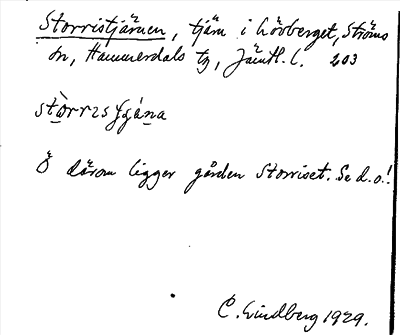 Storristjärnen, tjärn i Lövberget, Ströms
sn, Hammerdals tg, Jämtl. l. 203
Ö därom ligger gården Storriset. Se d.o.!
C. Lindberg 1929.